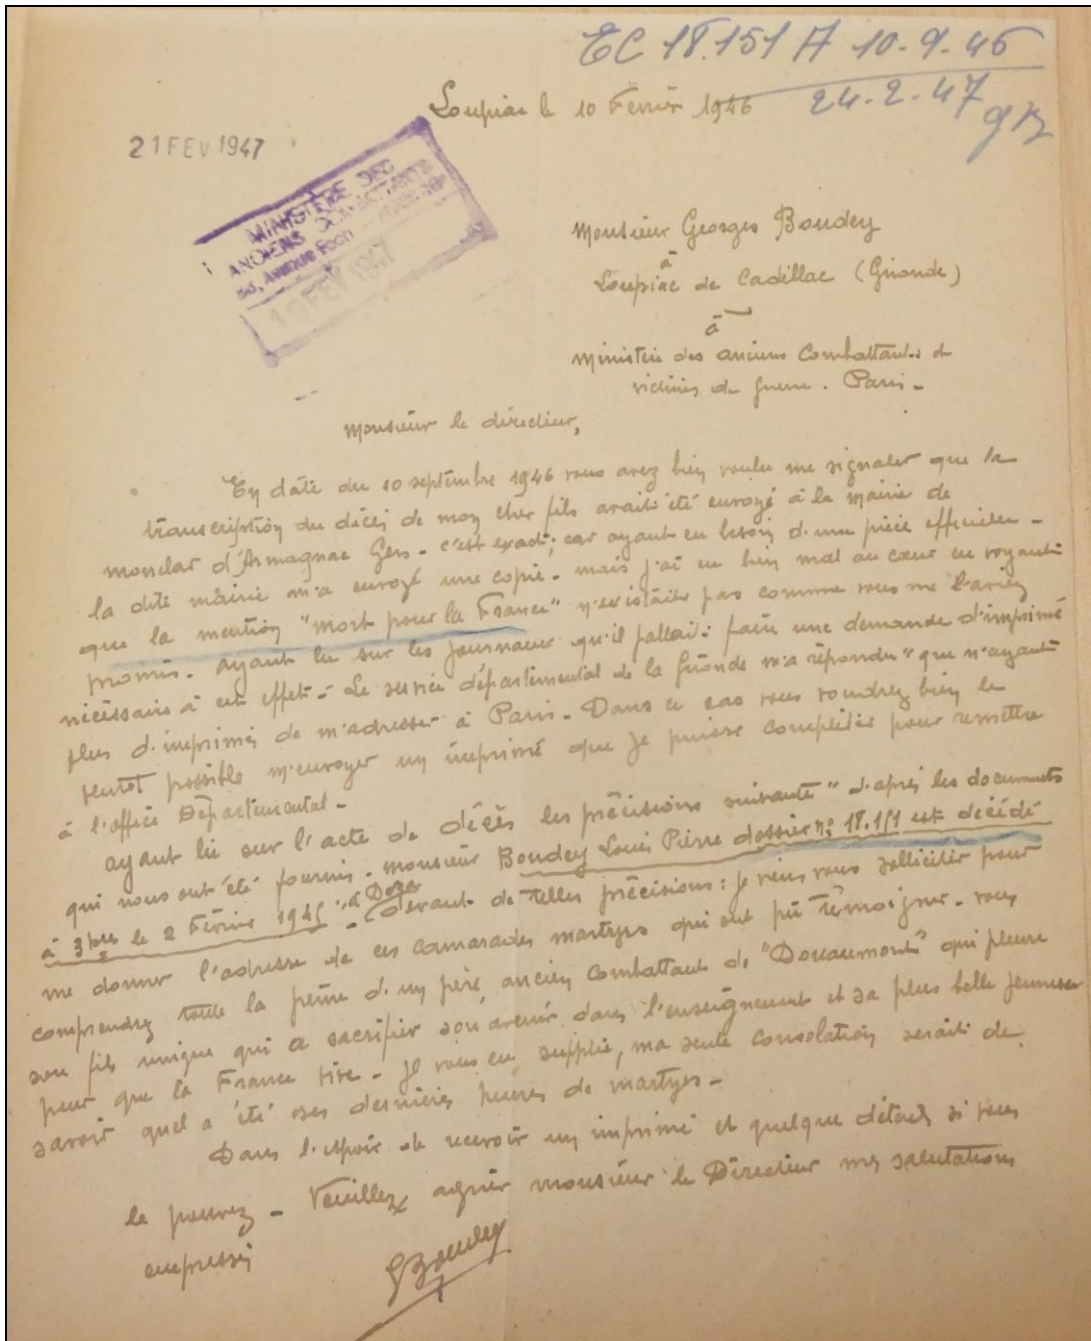 EC 18.151 A 10-9-46
24-2-47
Loupiac le 10 Février 1946
21 FEV 1947
MINISTÈRE DES
ANCIENS COMBATTANTS
Avenue Foch
19 FEV 1947
Monsieur Georges Boudey
à
Loupiac de Cadillac (Gironde)
à
Ministère des anciens Combattants et
victimes de guerre. Paris -
Monsieur le directeur,
En date du 10 septembre 1946 vous avez bien voulu me signaler que la
transcription du décès de mon cher fils avait été envoyé à la mairie de
monclar d'Armagnac Gers - c'est exact; car ayant eu besoin d'une pièce officielle -
la dite mairie m'a envoyé une copie - mais j'ai eu bien mal au cœur en voyant
que la mention "mort pour la France" n'existait pas comme vous me l'aviez
promis. ayant lu sur les journaux qu'il fallait faire une demande d'imprimé
nécéssaire à cet effet - Le service départemental de la Gironde m'a répondu "que n'ayant
plus d'imprimés de m'adresser à Paris - Dans ce cas vous voudrez bien le
plutôt possible m'envoyer un imprimé que je puisse compléter pour remettre
à l'office Départemental -
ayant lu sur l'acte de décès les précisions suivante "d'après les documents
qui nous ont été fournis - monsieur Boudey Louis Pierre dossier n° 18.151 est décédé
à 3 hres le 2 Février 1945 à Dora - devant de telles précisions: je viens vous solliciter pour
me donner l'adresse de ces camarades martyrs qui ont pû témoigner - vous
comprendrez toute la peine d'un père, ancien Combattant de "Douaumont" qui pleure
son fils unique qui a sacrifier son avenir dans l'enseignement et sa plus belle jeunesse
pour que la France vive - je vous en supplie, ma seule consolation serait de
savoir quel a été ses dernières heures de martyrs -
Dans l'espoir de recevoir un imprimé et quelque détails si vous
le pouvez - Veuillez agréer monsieur le Directeur mes salutations
empressés
G Boudey